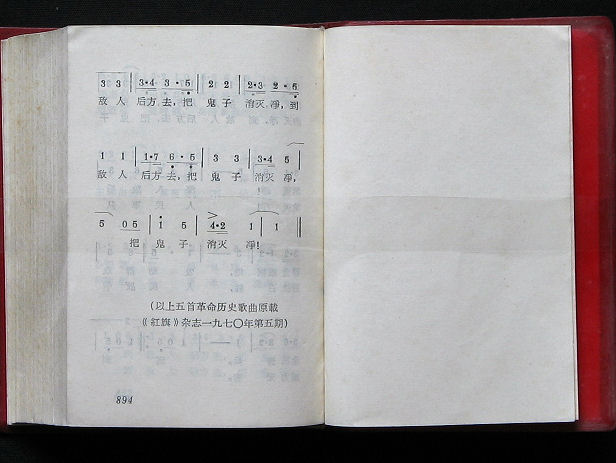 3 3 | 3·4 3·5 | 2 2 | 2·3 2·5
敌 人 后方 去，把 鬼 子 消灭 净，到
1 1 | 1·7 6·5 | 3 3 | 3·4 5
敌 人 后方 去，把 鬼 子 消灭 净，
5 05 | i 5 | 4·2 1 | 1 ‖
把 鬼 子 消灭 净！
（以上五首革命历史歌曲原載
《紅旗》杂志一九七〇年第五期）
894